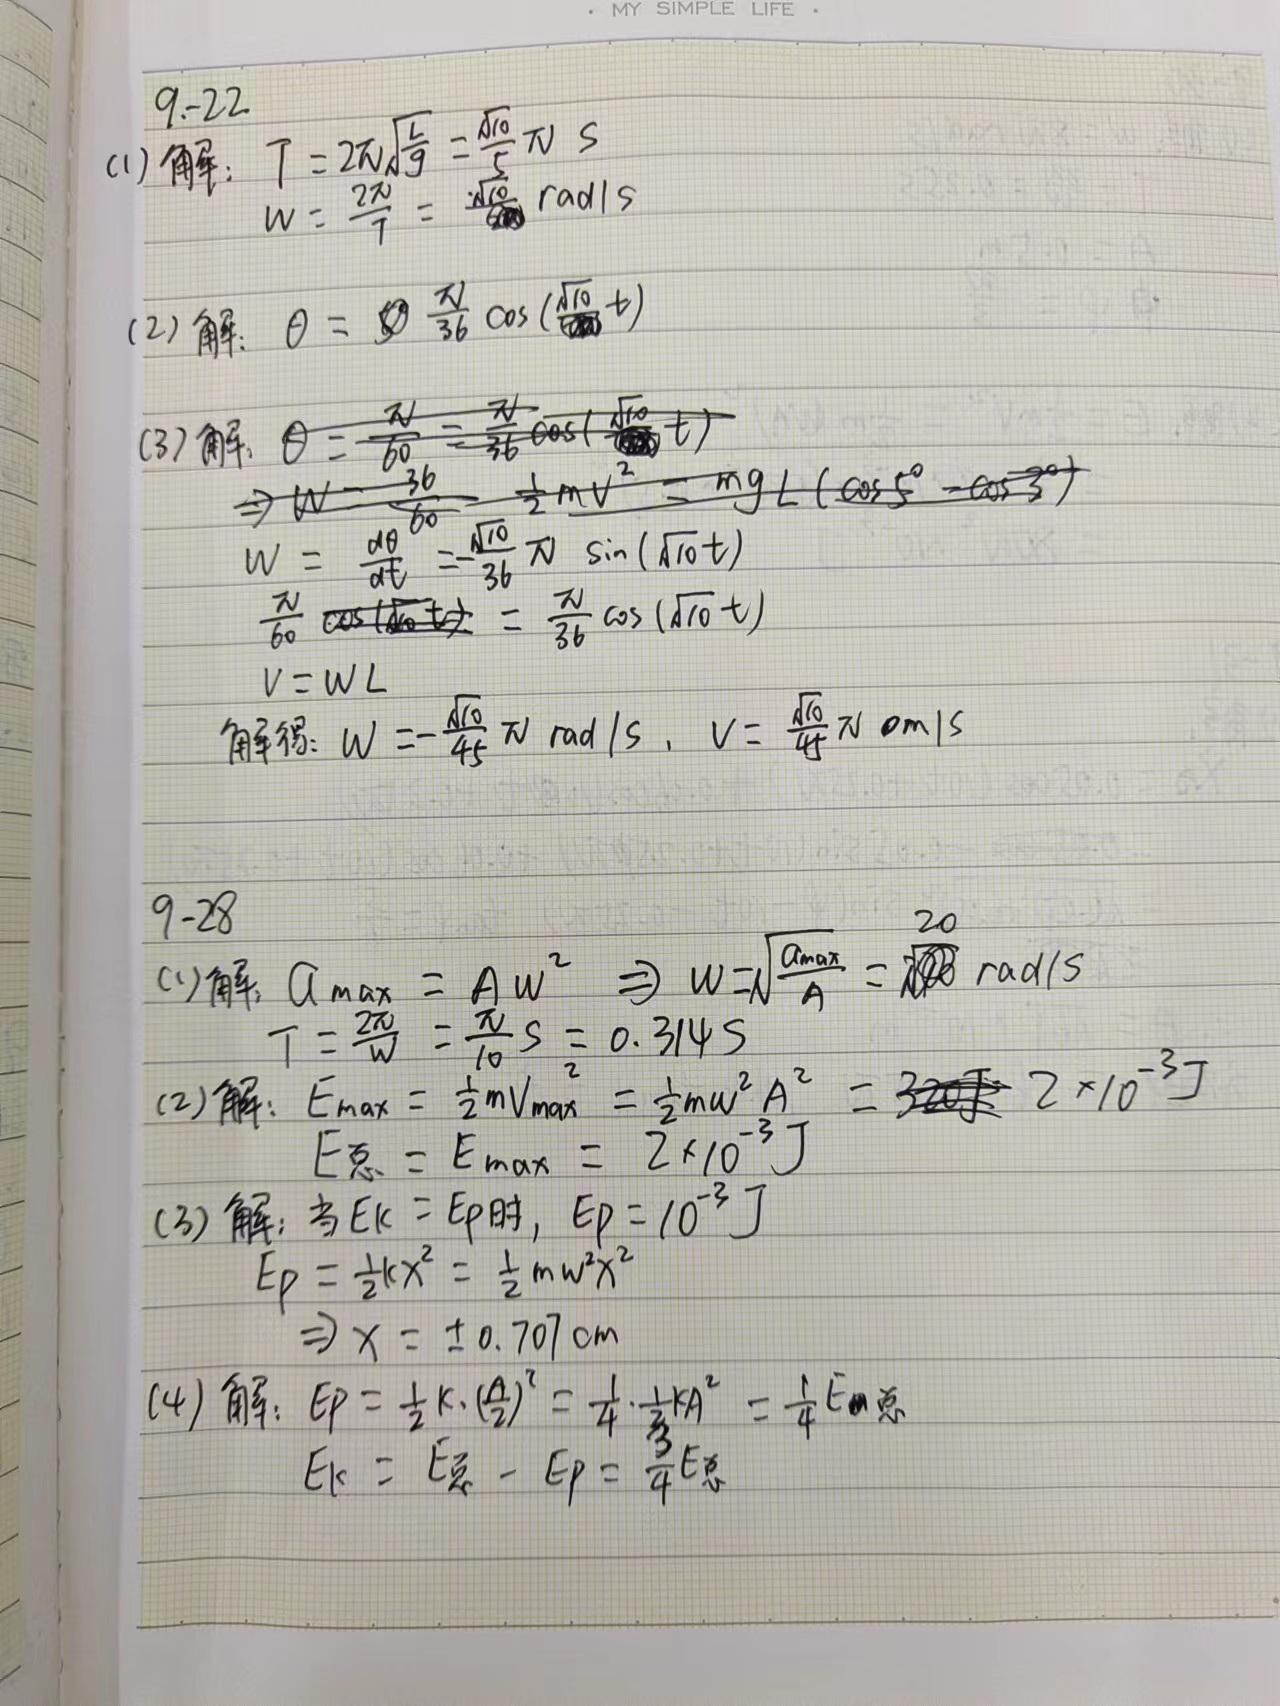 · MY SIMPLE LIFE ·
9.-22
(1) 解: T = 2π√(L/g) = √10/5 π S
W = 2π/T = √10 rad/s
(2) 解: θ = π/36 cos(√10 t)
(3) 解: θ = π/60 = π/36 cos(√10 t)
⇒ W = 36/60 1/2 mV² = mgL(cos5° - cos3°)
W = dθ/dt = -√10/36 π sin(√10t)
π/60 cos(√10 t) = π/36 cos(√10 t)
V = WL
解得: W = -√10/45 π rad/s, V = √10/45 π m/s
9-28
(1) 解: a max = AW² ⇒ W = √(amax/A) = 20 rad/s
T = 2π/W = π/10 S = 0.314S
(2) 解: Emax = 1/2 mVmax² = 1/2 mw²A² = 320J 2×10⁻³J
E总 = Emax = 2×10⁻³J
(3) 解: 当Ek = Ep时, Ep = 10⁻³J
Ep = 1/2 kx² = 1/2 mw²x²
⇒ x = ±0.707cm
(4) 解: Ep = 1/2 k·(A/2)² = 1/4·1/2 kA² = 1/4 E总
Ek = E总 - Ep = 3/4 E总